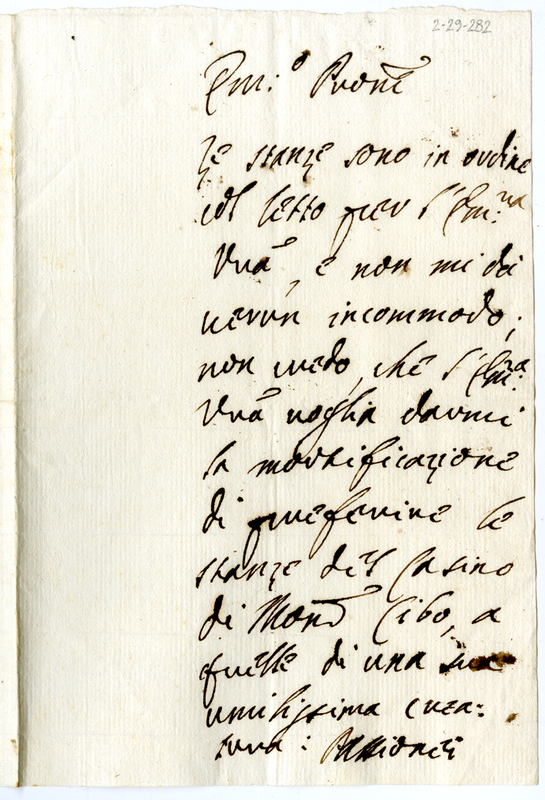 2-29-282
Em:o Prone
Le stanze sono in ordine
col letto per l'Em:za
Vra, e non mi dà
verun incommodo;
non credo, che l'Em:za
Vra voglia darmi
la mortificazione
di preferire le
stanze del Casino
di Monr Cibo, a
quelle di una sua
umilissima crea:
tura: Passionei